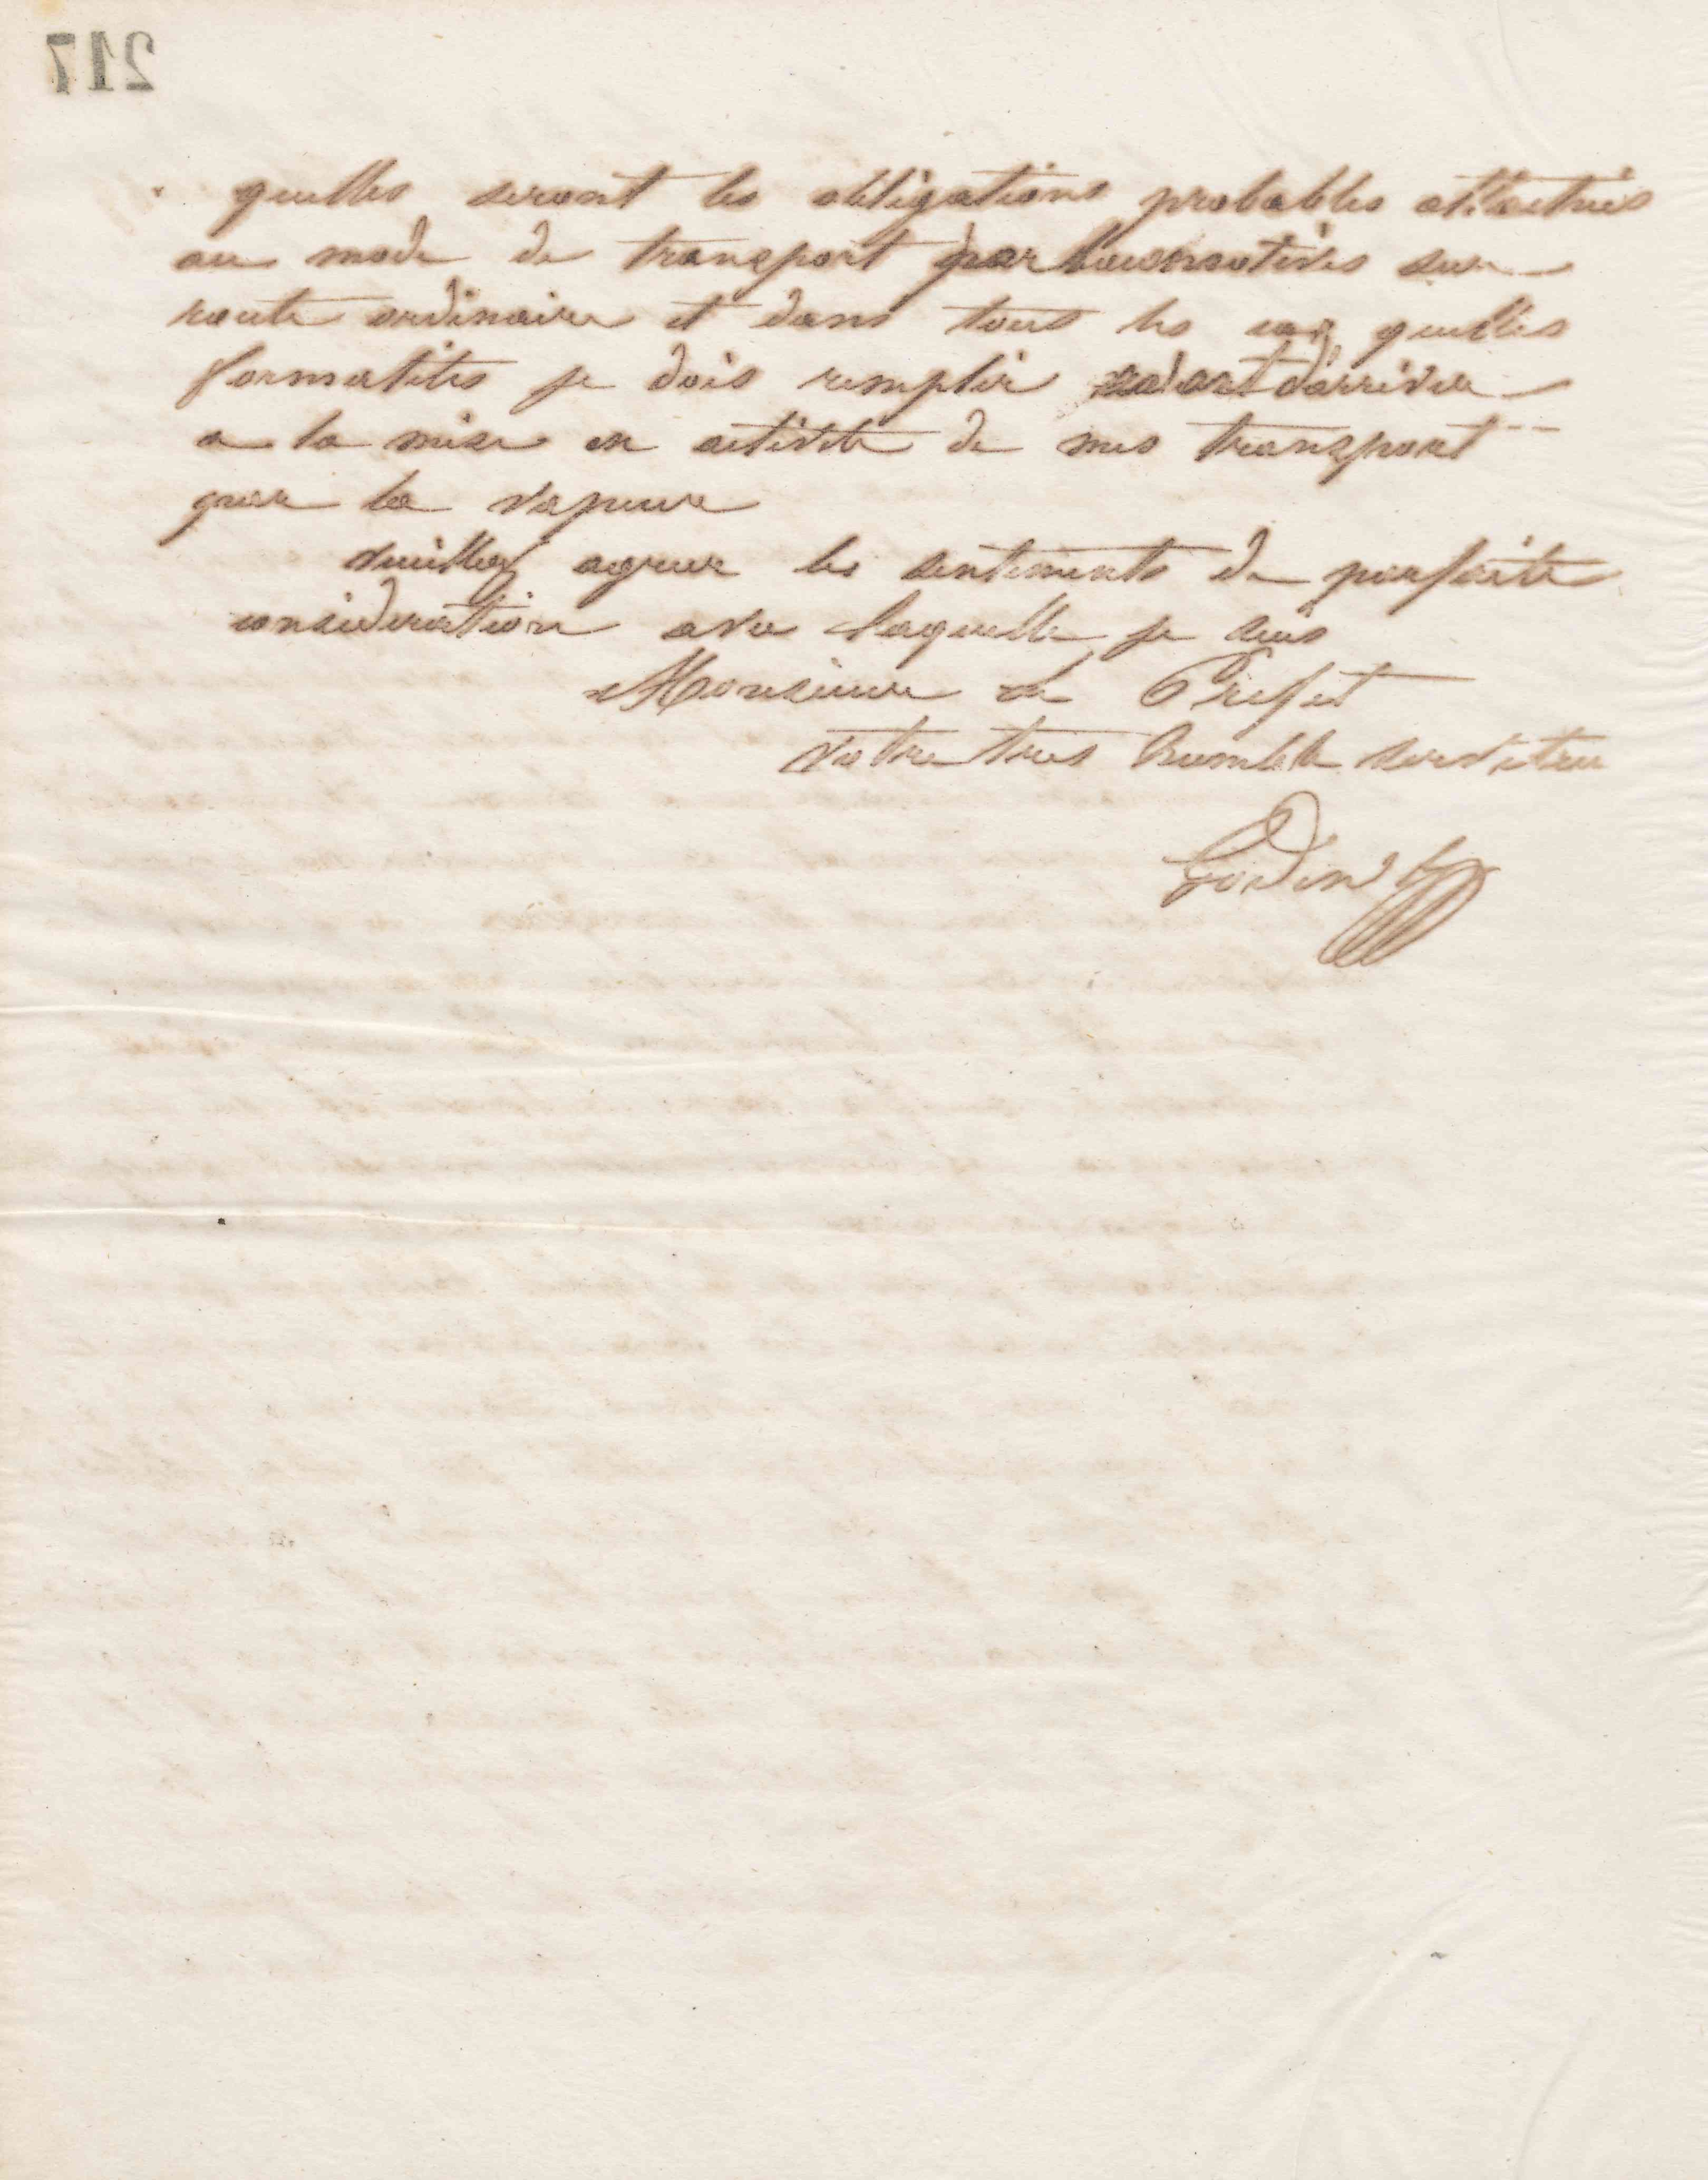 217
quelles seront les obligations probables attachés
au mode de transport par locomotives sur
route ordinaire et dans tous les cas quelles
formalites je dois remplir avant d'arriver
a la mise en activite de mes transport
par la vapeur
veuillez agreer les sentiments de parfaite
consideration avec laquelle je suis
Monsieur le Prefet
votre tres humble serviteur
Godin